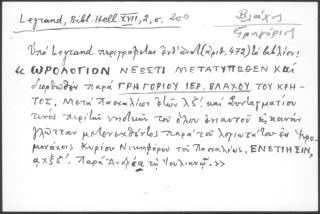 Legrand, Bibl. Hell. XVII, 2, σ. 200
Βλάχος
Γρηγόριος
Ὑπὸ Legrand περιγράφεται (ἀριθ. 472) βιβλίον!
« ΩΡΟΛΟΓΙΟΝ ΝΕΩΣΤΙ ΜΕΤΑΤΥΠΩΘΕΝ ΚΑΙ
διορθωθὲν παρὰ ΓΡΗΓΟΡΙΟΥ ΙΕΡ. ΒΛΑΧΟΥ ΤΟΥ ΚΡΗ-
ΤΟΣ, Μετὰ Πασχαλίου ἐτῶν λξ΄ καὶ Συνταγματίου
τινὸς περὶ τῶν τοῦ ὅλου ἐνιαυτοῦ εἰς κοινὴν
γλῶτταν μετενεχθέντος παρὰ τοῦ λογιωτάτου ἐν Ἱερο-
μονάχοις Κυρίου Νικηφόρου τοῦ Πασχαλέως, ΕΝΕΤΙΗΣΙΝ,
αχξξ΄. Παρὰ Ἀνδρέᾳ τῷ Ἰουλιανῷ. »